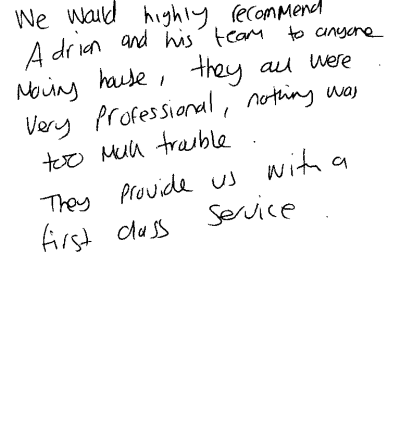 We would highly recommend
Adrian and his team to anyone
Moving house, they all were
Very Professional, nothing was
too much trouble.
They Provide us with a
first class Service.